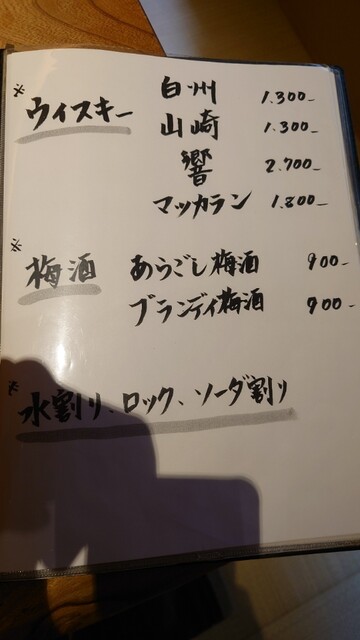 ※ウィスキー 白州 1.300-
山崎 1.300-
響 2.700-
マッカラン 1.800-
※梅酒 あらごし梅酒 900-
ブランディ梅酒 900-
※水割り、ロック、ソーダ割り